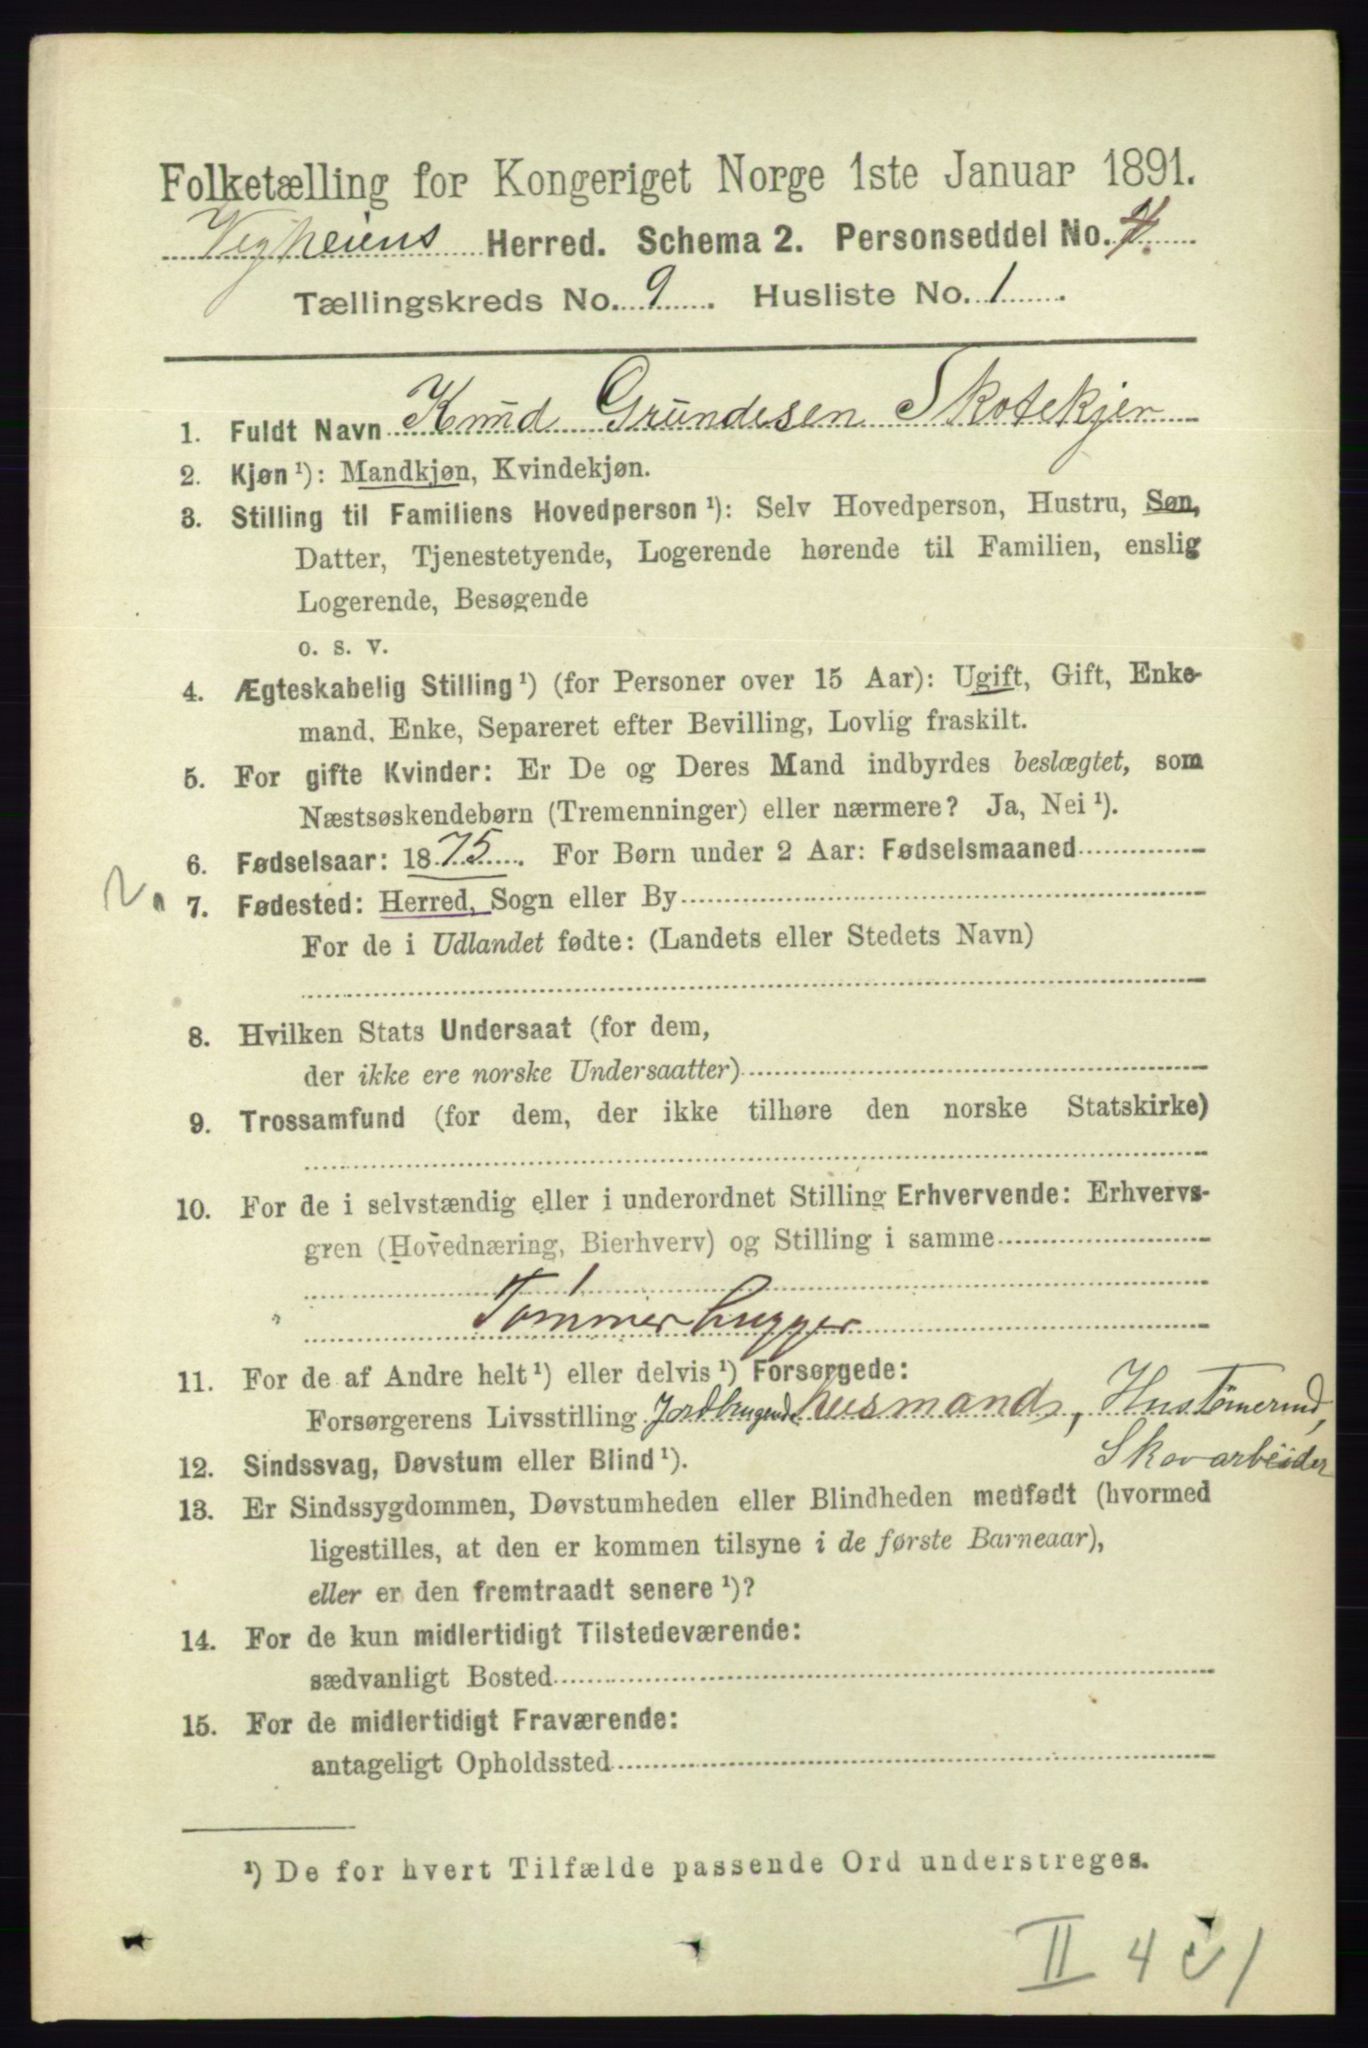 Folketælling for Kongeriget Norge 1ste Januar 1891.
Vegheiens Herred. Schema 2. Personseddel No. 4.
Tællingskreds No. 9. Husliste No. 1.
1. Fuldt Navn Knud Grundesen Skotekjen
2. Kjøn ¹): Mandkjøn, Kvindekjøn.
3. Stilling til Familiens Hovedperson ¹): Selv Hovedperson, Hustru, Søn,
Datter, Tjenestetyende, Logerende hørende til Familien, enslig
Logerende, Besøgende
o. s. v.
4. Ægteskabelig Stilling ¹) (for Personer over 15 Aar): Ugift, Gift, Enke-
mand, Enke, Separeret efter Bevilling, Lovlig fraskilt.
5. For gifte Kvinder: Er De og Deres Mand indbyrdes beslægtet, som
Næstsøskendebørn (Tremenninger) eller nærmere? Ja, Nei ¹).
6. Fødselsaar: 1875. For Børn under 2 Aar: Fødselsmaaned
N. 7. Fødested: Herred, Sogn eller By
For de i Udlandet fødte: (Landets eller Stedets Navn)
8. Hvilken Stats Undersaat (for dem,
der ikke ere norske Undersaatter)
9. Trossamfund (for dem, der ikke tilhøre den norske Statskirke)
10. For de i selvstændig eller i underordnet Stilling Erhvervende: Erhvervs-
gren (Hovednæring, Bierhverv) og Stilling i samme
Tommerhugger
11. For de af Andre helt ¹) eller delvis ¹) Forsørgede:
Forsørgerens Livsstilling Jordbrugende husmand,
Skovarbeider
12. Sindssvag, Døvstum eller Blind ¹).
13. Er Sindssygdommen, Døvstumheden eller Blindheden medfødt (hvormed
ligestilles, at den er kommen tilsyne i de første Barneaar),
eller er den fremtraadt senere ¹)?
14. For de kun midlertidigt Tilstedeværende:
sædvanligt Bosted
15. For de midlertidigt Fraværende:
antageligt Opholdssted
¹) De for hvert Tilfælde passende Ord understreges.
II 4